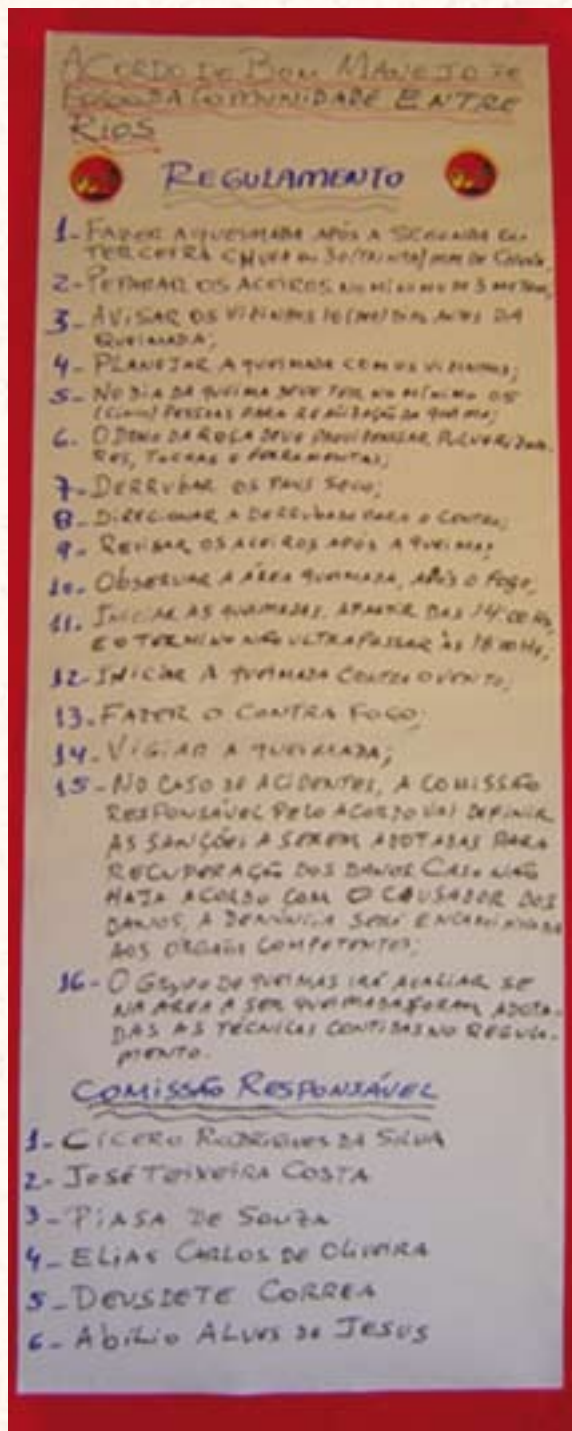 ACORDO DE BOM MANEJO DE
FOGO DA COMUNIDADE ENTRE
RIOS
REGULAMENTO
1- FAZER A QUEIMADA APÓS A SEGUNDA OU
TERCEIRA CHUVA OU 30/TRINTA/MM DE CHUVA,
2- PEPARAR OS ACEIROS NO MÍNIMO DE 3 METROS,
3- AVISAR OS VIZINHOS 10 (DEZ) DIAS ANTES DA
QUEIMADA;
4- PLANEJAR A QUEIMADA COM OS VIZINHOS;
5- NO DIA DA QUEIMA DEVE TER NO MÍNIMO 05
(CINCO) PESSOAS PARA REALIZAÇÃO DA QUEIMA;
6- O DONO DA ROÇA DEVE PULVERIZADO-
RES, E FERRAMENTAS;
7- DERRUBAR OS PAUS SECO;
8- DIRECIONAR A DERRUBADA PARA O CENTRO;
9- REVISAR OS ACEIROS APÓS A QUEIMA;
10- OBSERVAR A ÁREA QUEIMADA, APÓS O FOGO,
11. INICIAR AS QUEIMADAS, APARTIR DAS 14:00 HS,
E O TERMINO NÃO ULTRAPASSAR ÀS 18:00 HS;
12- INICIAR A QUEIMADA CONTRA O VENTO;
13- FAZER O CONTRA FOGO;
14- VIGIAR A QUEIMADA;
15- NO CASO DE ACIDENTES, A COMISSÃO
RESPONSÁVEL PELO ACORDO VAI DEFINIR
AS SANÇÕES A SEREM ADOTADAS PARA
RECUPERAÇÃO DOS DANOS CASO NÃO
HAJA ACORDO COM O CAUSADOR DOS
DANOS, A DENÚNCIA SERÁ ENCAMINHADA
AOS ORGAOS COMPETENTES;
16- O GRUPO DE QUEIMAS IRÁ AVALIAR SE
NA AREA A SER QUEIMADA FORAM ADOTA-
DAS AS TÉCNICAS CONTIDAS NO REGULA-
MENTO.
COMISSÃO RESPONSÁVEL
1- CÍCERO RODRIGUES DA SILVA
2- JOSÉ TEIXEIRA COSTA
3- PIASA DE SOUZA
4- ELIAS CARLOS DE OLIVEIRA
5- DEUSDETE CORREA
6- ABÍLIO ALVES DE JESUS